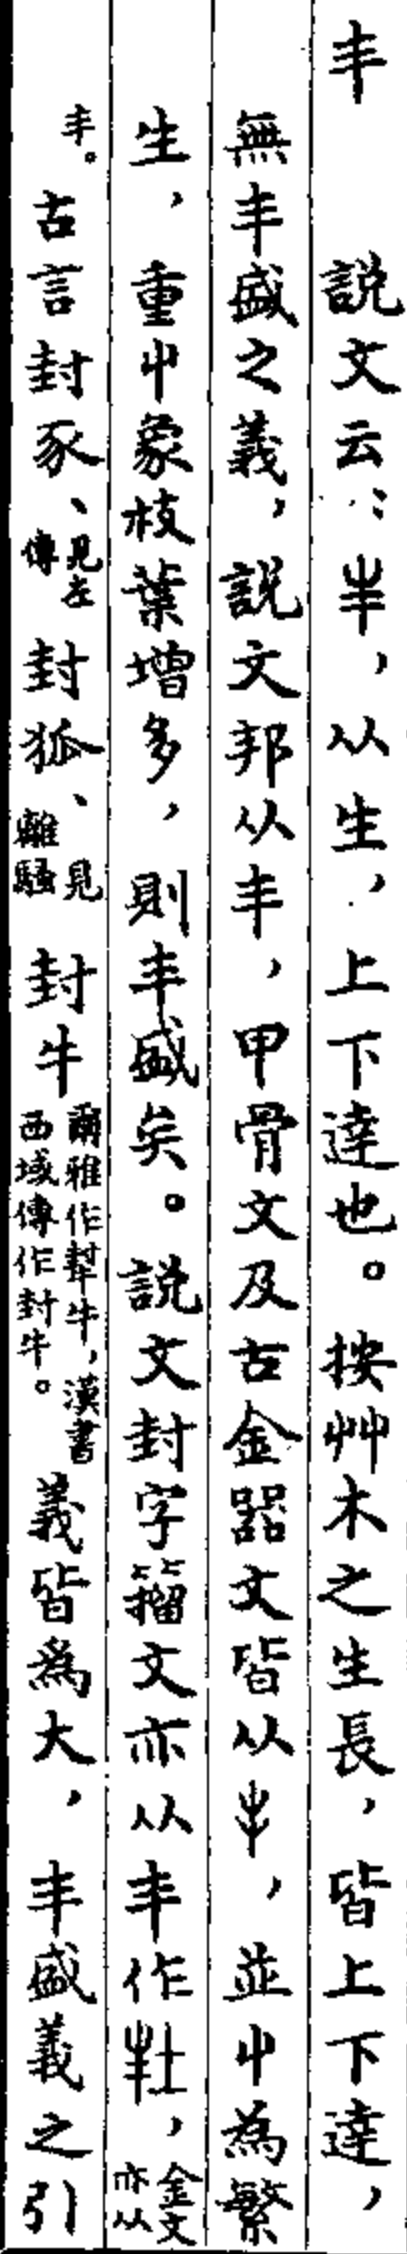 丰　説文云：𡴀，从生，上下達也。按艸木之生長，皆上下達，
無丰盛之義，説文邦从丰，甲骨文及古金器文皆从丰，並屮為繁
生，重屮象枝葉增多，則丰盛矣。説文封字籀文亦从丰作𡉘，金文亦从
丰。古言封豕、見左傳封狐、見離騷封牛爾雅作犎牛，漢書西域傳作封牛。義皆為大，丰盛義之引